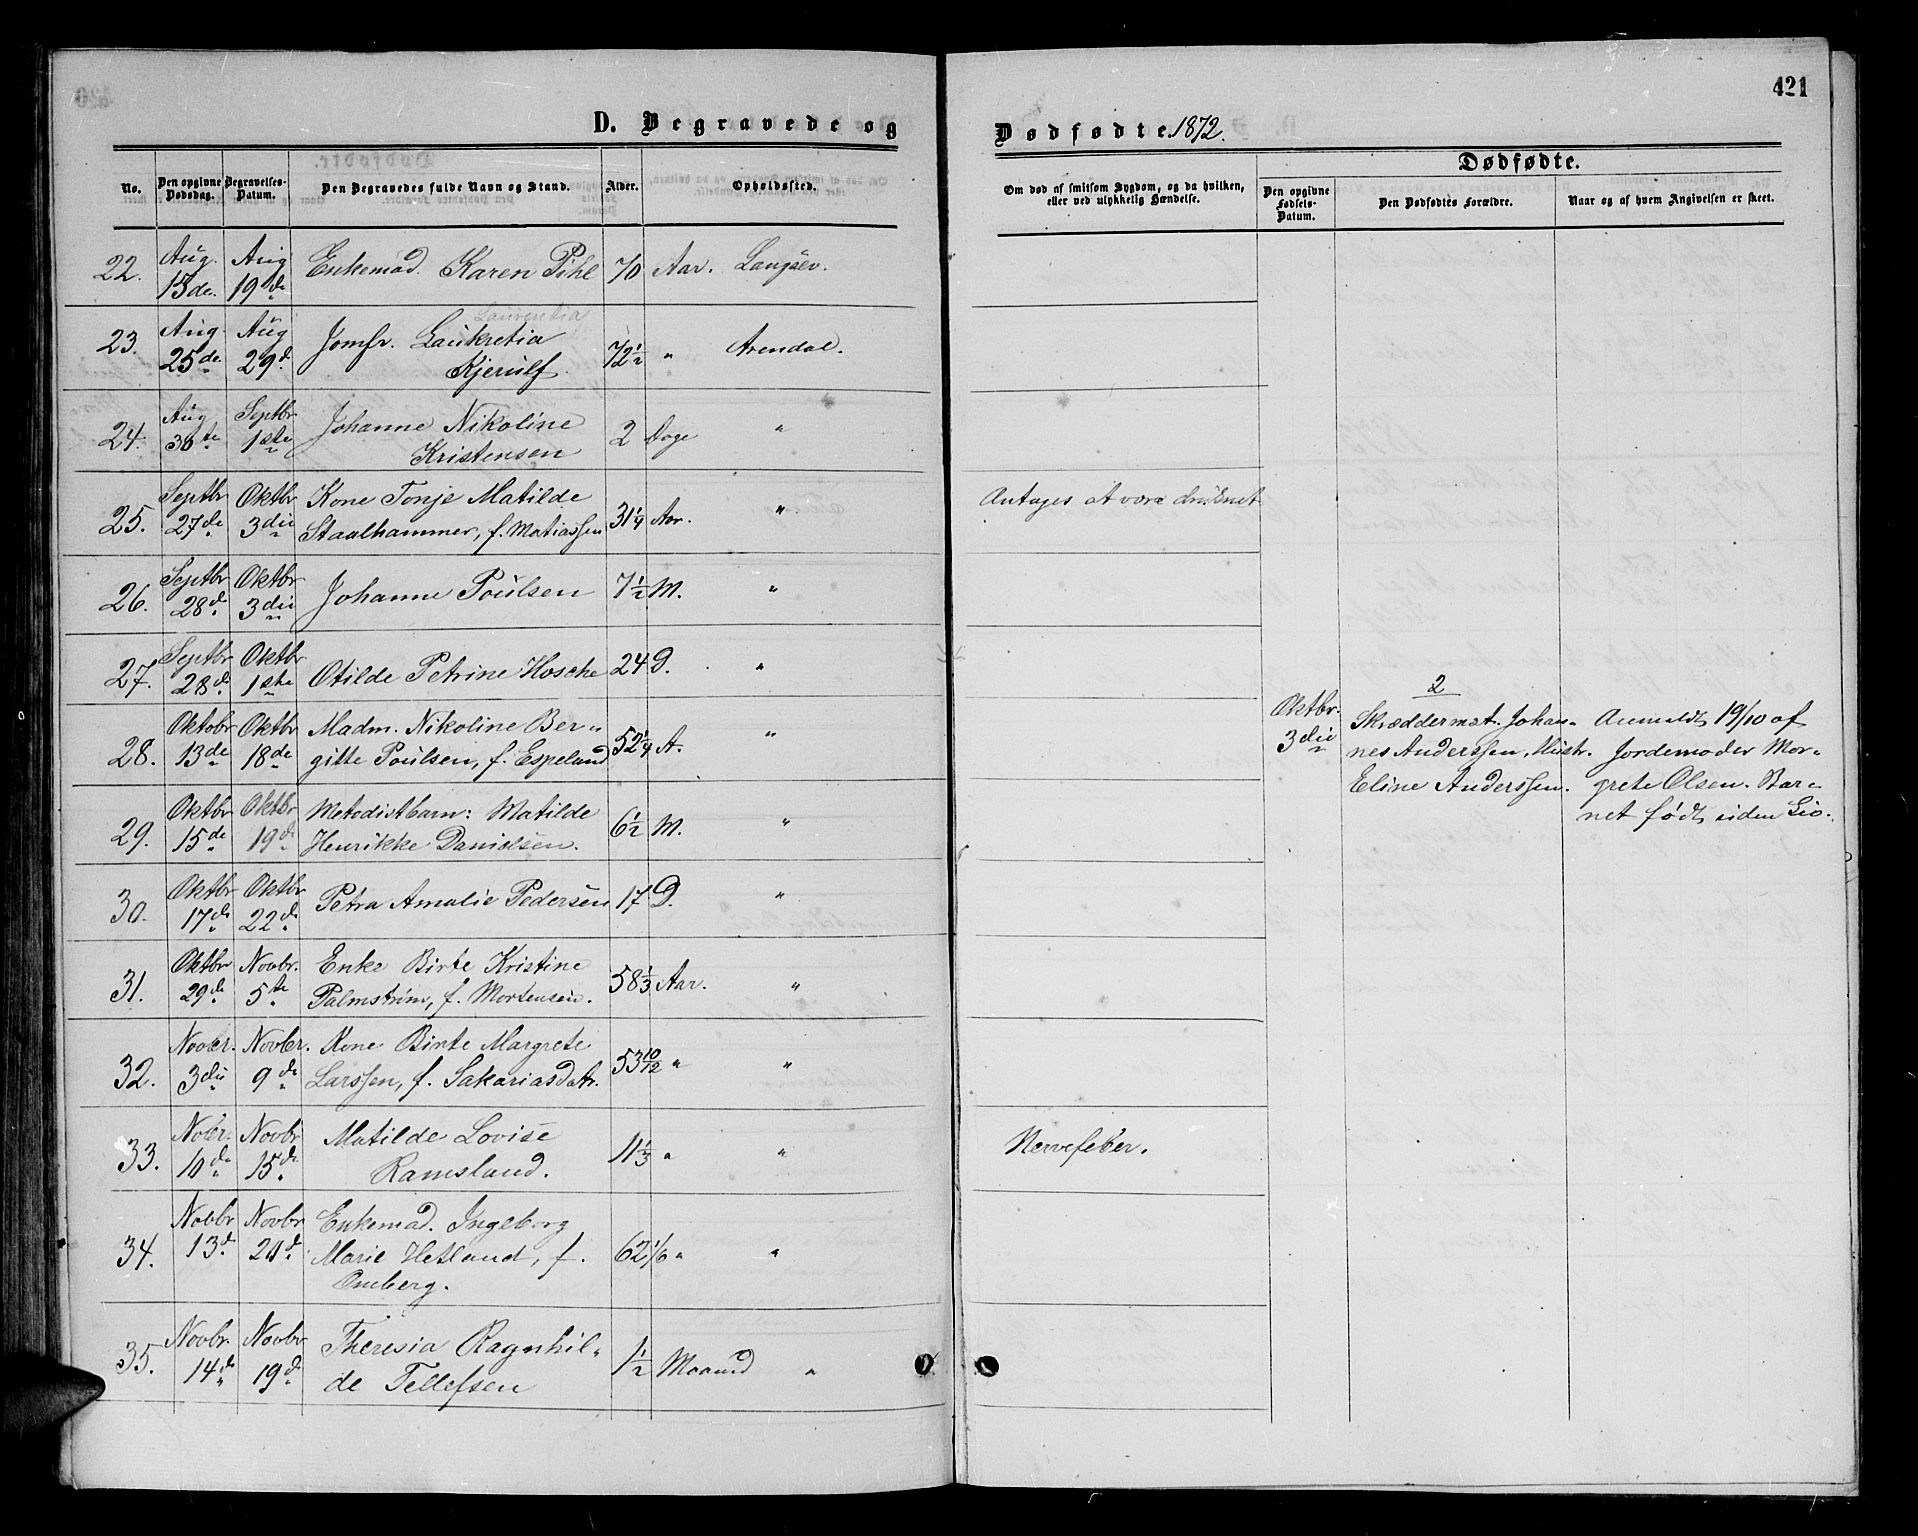 421
D. Begravede og Dødfødte. 1872.
No.
Den opgivne Dødsdag.
Begravelses-Datum.
Den Begravedes fulde Navn og Stand.
Alder.
Opholdssted.
Om død af smitsom Sygdom, og da hvilken, eller ved ulykkelig Hændelse.
Dødfødte.
Den opgivne Fødsels-Datum.
Den Dødfødtes Forældre.
Naar og af hvem Angivelsen er skeet.
22. Aug. 15de. Aug 19de Enkemad. Karen Pihl 70 Aar. Langsæv.
Laurentia
23. Aug. 25de. Aug 29d. Jomfr. Laukretia
Kjerulf. 72½ " Arendal.
24. Aug 30te Septbr 1ste Johanne Nikoline
Kristensen 2 Dage "
25. Septbr 27de Oktbr 3die Kone Tonje Matilde
Staalhammer, f. Matiassen 31¼ Aar. " Antages at være druknet
26. Septbr 28d. Oktbr 3die Johanne Poulsen 7½ M. "
27. Septbr 28d. Oktbr 1ste Otilde Petrine Hosche 24 D. "
28. Oktobr 13de Oktbr 18de Madm. Nikoline Ber-
gitte Poulsen, f. Espeland 52¼ A. "
2
Oktbr. 3die
Skræddermst. Johan-
nes Anderssen, Hustr.
Eline Anderssen.
Anmeldt 19/10 af
Jordemoder Mar-
grete Olsen. Bar-
net født uden Liv.
29. Oktbr 15de Oktbr 19d. Metodistbarn: Matilde
Henrikke Danielsen. 6½ M. "
30. Oktbr 17d. Oktbr 22d. Petra Amalie Pedersen 17 D. "
31. Oktbr 29d. Novbr. 5te Enke Birte Kristine
Palmstrøm, f. Mortensen. 58⅓ Aar. "
32. Novbr. 3die Novbr. 9de Kone Birte Margrete
Larssen, f. Sakariasdatr. 53 10/12 " "
33. Nobr. 10de Novbr 15de Matilde Lovise
Ramsland. 11⅓ " " Nervefeber.
34. Novbr 13d. Novbr 20d. Enkemad. Ingeborg
Marie Hetland, f.
Omberg. 62 1/6 " "
35. Novbr. 14de Novbr 19d. Theresia Ragnhil-
de Tellefsen 1½ Maaned "